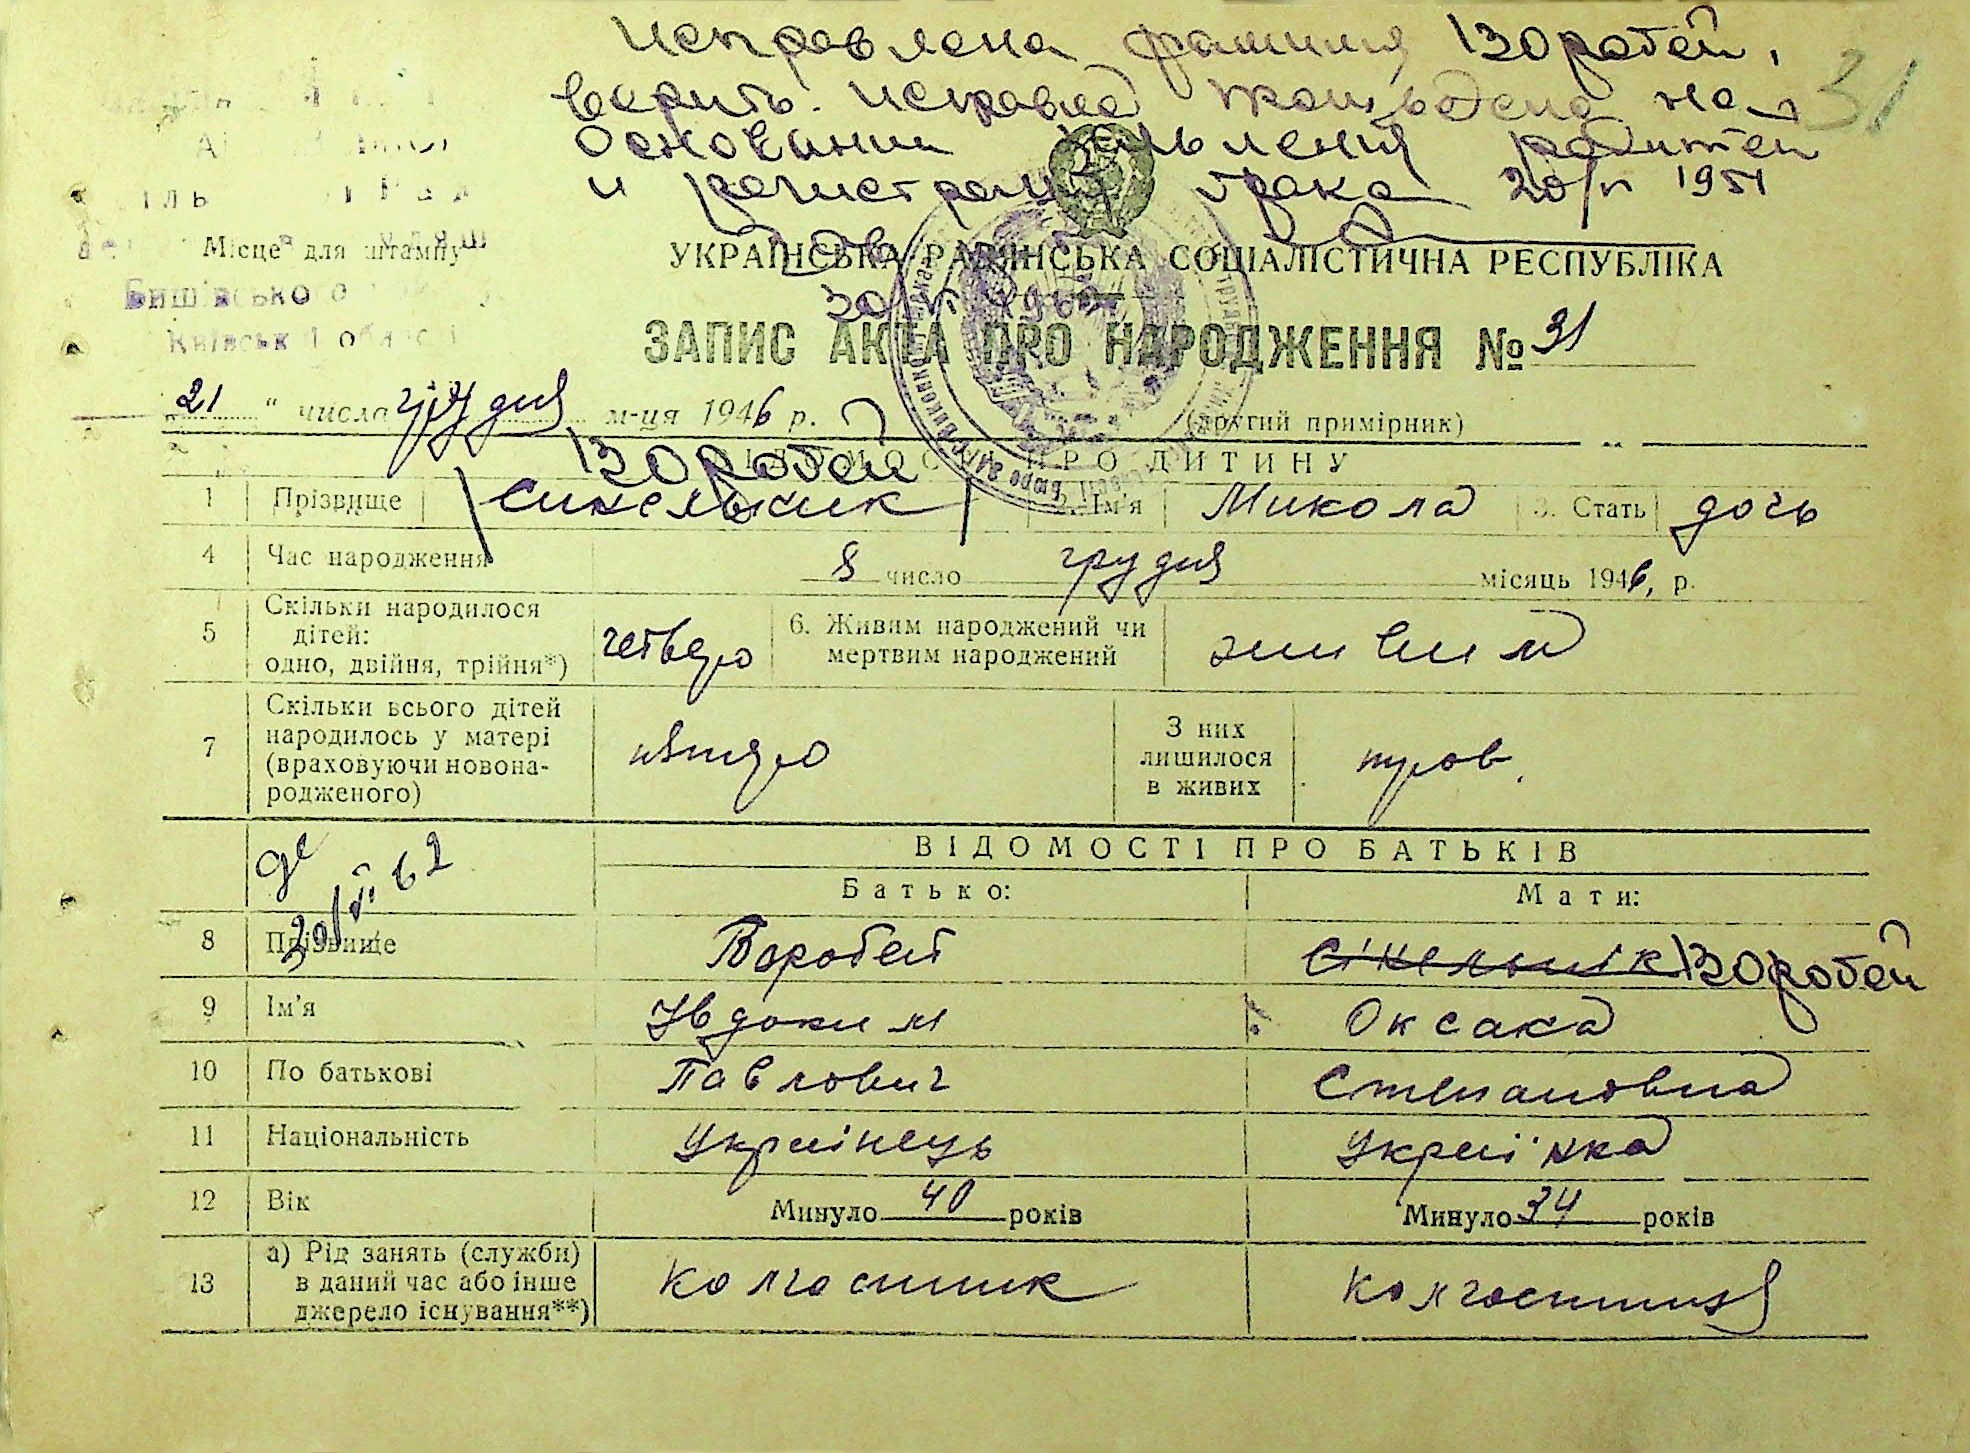 Исправлена фамилия Воробей,
верить. на
31
основании родителей
и регистрации брака 20/VI 1951
Місце для штампу
УКРАЇНСЬКА РАДЯНСЬКА СОЦІАЛІСТИЧНА РЕСПУБЛІКА
Київської області
ЗАПИС АКТА ПРО НАРОДЖЕННЯ № 31
21 " числа грудня м-ця 1946 р.
(другий примірник)
ВІДОМОСТІ ПРО ДИТИНУ
Воробей
1 Прізвище Синельник 2. Ім'я Микола 3. Стать дочь
4 Час народження 8 число грудня місяць 1946, р.
5 Скільки народилося дітей: одно, двійня, трійня*) четверо 6. Живим народжений чи мертвим народжений живим
7 Скільки всього дітей народилось у матері (враховуючи новонародженого) З них лишилося в живих
20/VI 62
ВІДОМОСТІ ПРО БАТЬКІВ
Батько: Мати:
8 Прізвище Воробей Сінельнік Воробей
9 Ім'я Овдоким Оксана
10 По батькові Павлович Степановна
11 Національність Українець Українка
12 Вік Минуло 40 років Минуло 34 років
13 а) Рід занять (служби) в даний час або інше джерело існування**) Колгоспник Колгоспниця